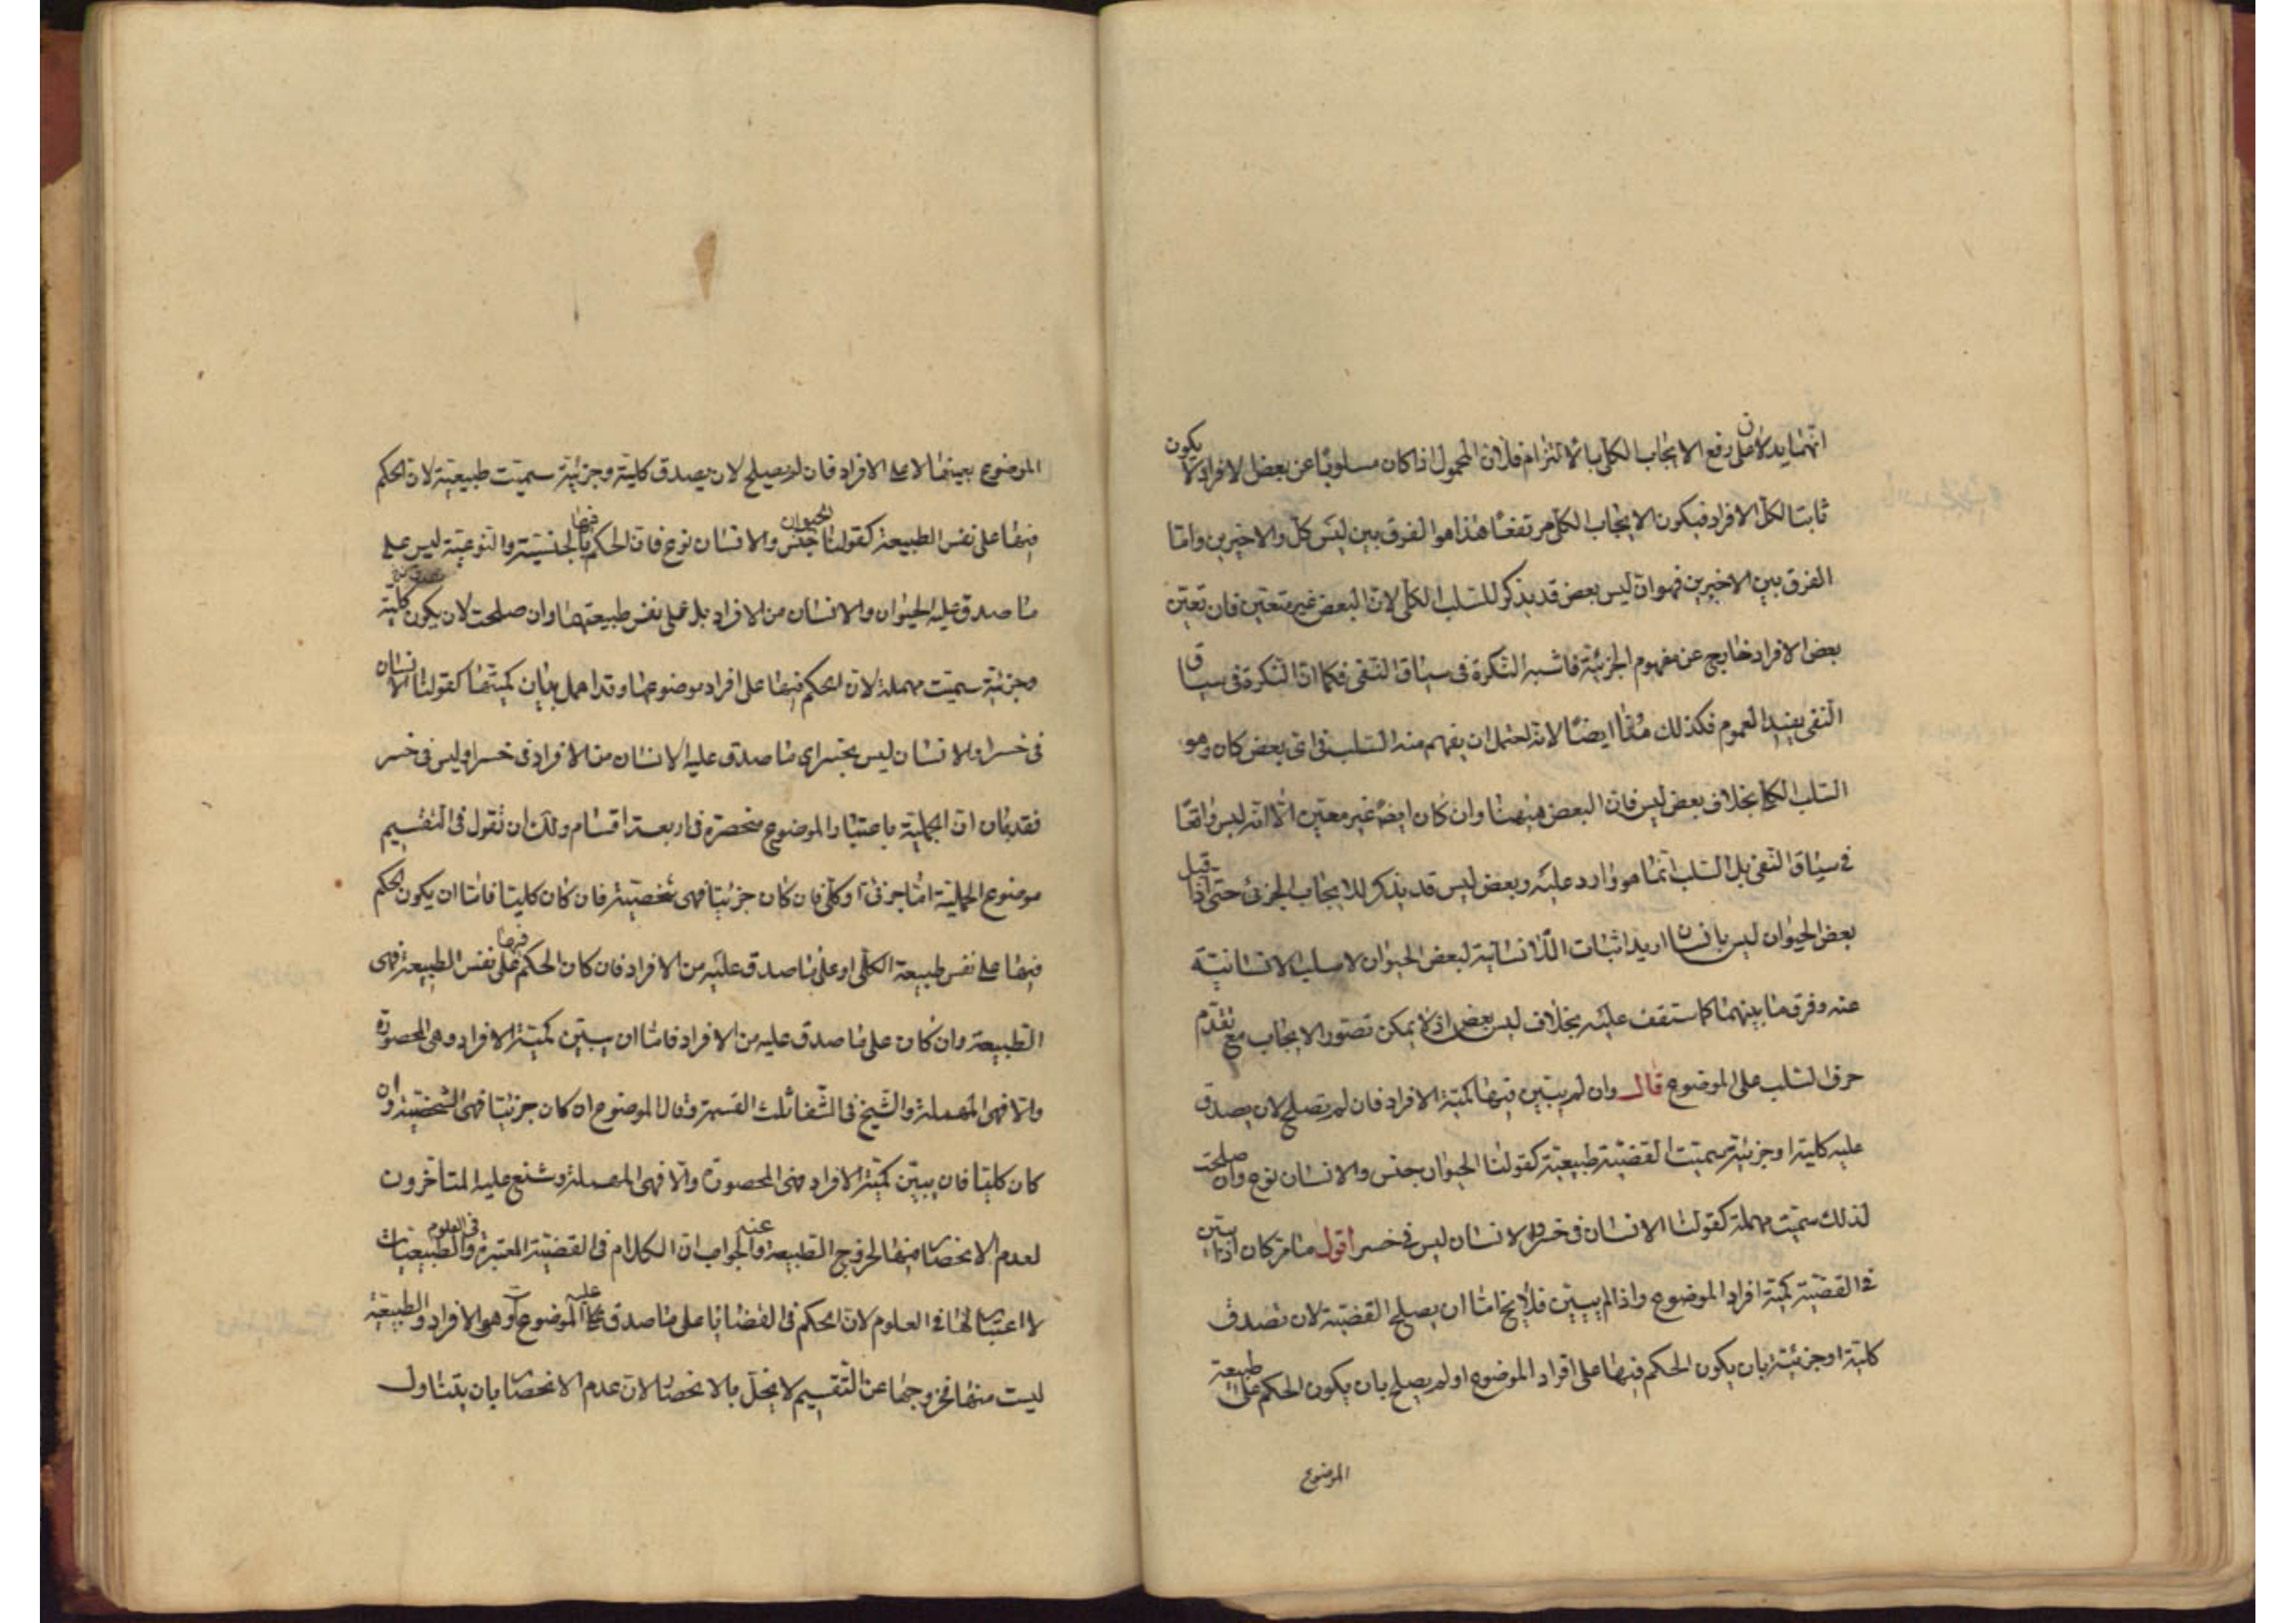 انهما يدلان على رفع الايجاب الكلى بالالتزام فلان المحمول اذا كان مسلوبا عن بعض الافراد لا يكون
ثابتا لكل الافراد فيكون الايجاب الكلى مرتفعا هذا هو الفرق بين ليس كل والاخيرين واما
الفرق بين الاخيرين فهو ان ليس بعض قد يذكر للسلب الكلى لان البعض غير متعين فان تعين
بعض الافراد خارج عن مفهوم الجزئية فاشبه النكرة فى سياق النفى فكما ان النكرة فى سياق
النفى يفيد العموم فكذلك هنا ايضا لانه احتمل ان يفهم منه السلب فى اى بعض كان وهو
السلب الكلى بخلاف بعض ليس فان البعض ههنا وان كان ايضا غير معين الا انه ليس واقعا
فى سياق النفى بل السلب انما هو وارد عليه وبعض ليس قد يذكر للايجاب الجزئى حتى اذا قيل
بعض الحيوان ليس بانسان اريد اثبات اللاانسانية لبعض الحيوان لا سلب الانسانية
عنه وفرق ما بينهما كما ستقف عليه بخلاف ليس بعض اذ لا يمكن تصور الايجاب مع تقدم
حرف السلب على الموضوع قال وان لم يبين فيها كمية الافراد فان لم تصلح لان يصدق
عليه كلية او جزئية سميت القضية طبيعية كقولنا الحيوان جنس والانسان نوع وان صلحت
لذلك سميت مهملة كقولنا الانسان فى خسر والانسان ليس فى خسر اقول ما مر كان اذا بين
فى القضية كمية افراد الموضوع واذا لم يبين فلا يخ اما ان يصلح القضية لان تصدق
كلية او جزئية بان يكون الحكم فيها على افراد الموضوع او لم يصلح بان يكون الحكم على طبيعة
الموضوع
الموضوع بعينها لا على الافراد فان لم يصلح لان يصدق كلية وجزئية سميت طبيعية لان الحكم
فيها على نفس الطبيعة كقولنا الحيوان جنس والانسان نوع فان الحكم فيها بالجنسية والنوعية ليس على
ما صدق عليه الحيوان والانسان من الافراد بل على نفس طبيعتهما وان صلحت لان يكون كلية
وجزئية سميت مهملة لان الحكم فيها على افراد موضوعها وقد اهمل بيان كميتها كقولنا الانسان
فى خسر او الانسان ليس بخسر اى ما صدق عليه الانسان من الافراد فى خسر او ليس فى خسر
فقد بان ان الحملية باعتبار الموضوع منحصرة فى اربعة اقسام ولك ان تقول فى التقسيم
موضوع الحملية اما جزئى او كلى فان كان جزئيا فهى شخصية فان كان كليا فاما ان يكون الحكم
فيها على نفس طبيعة الكلى او على ما صدق عليه من الافراد فان كان الحكم فيها على نفس الطبيعة فهى
الطبيعية وان كان على ما صدق عليه من الافراد فاما ان يبين كمية الافراد وهى المحصورة
والا فهى المهملة والشيخ فى الشفا ثلث القسمة وقال الموضوع ان كان جزئيا فهى الشخصية وان
كان كليا فان يبين كمية الافراد فهى المحصورة والا فهى المهملة وشنع عليه المتأخرون
لعدم الانحصار فيها لخروج الطبيعة عنه والجواب ان الكلام فى القضية المعتبرة فى العلوم والطبيعيات
لا اعتبار لها فى العلوم لان الحكم فى القضايا على ما صدق عليه الموضوع وهو الافراد والطبيعية
ليست منها فخروجها عن التقسيم لا يخل بالانحصار لان عدم الانحصار بان يتناول